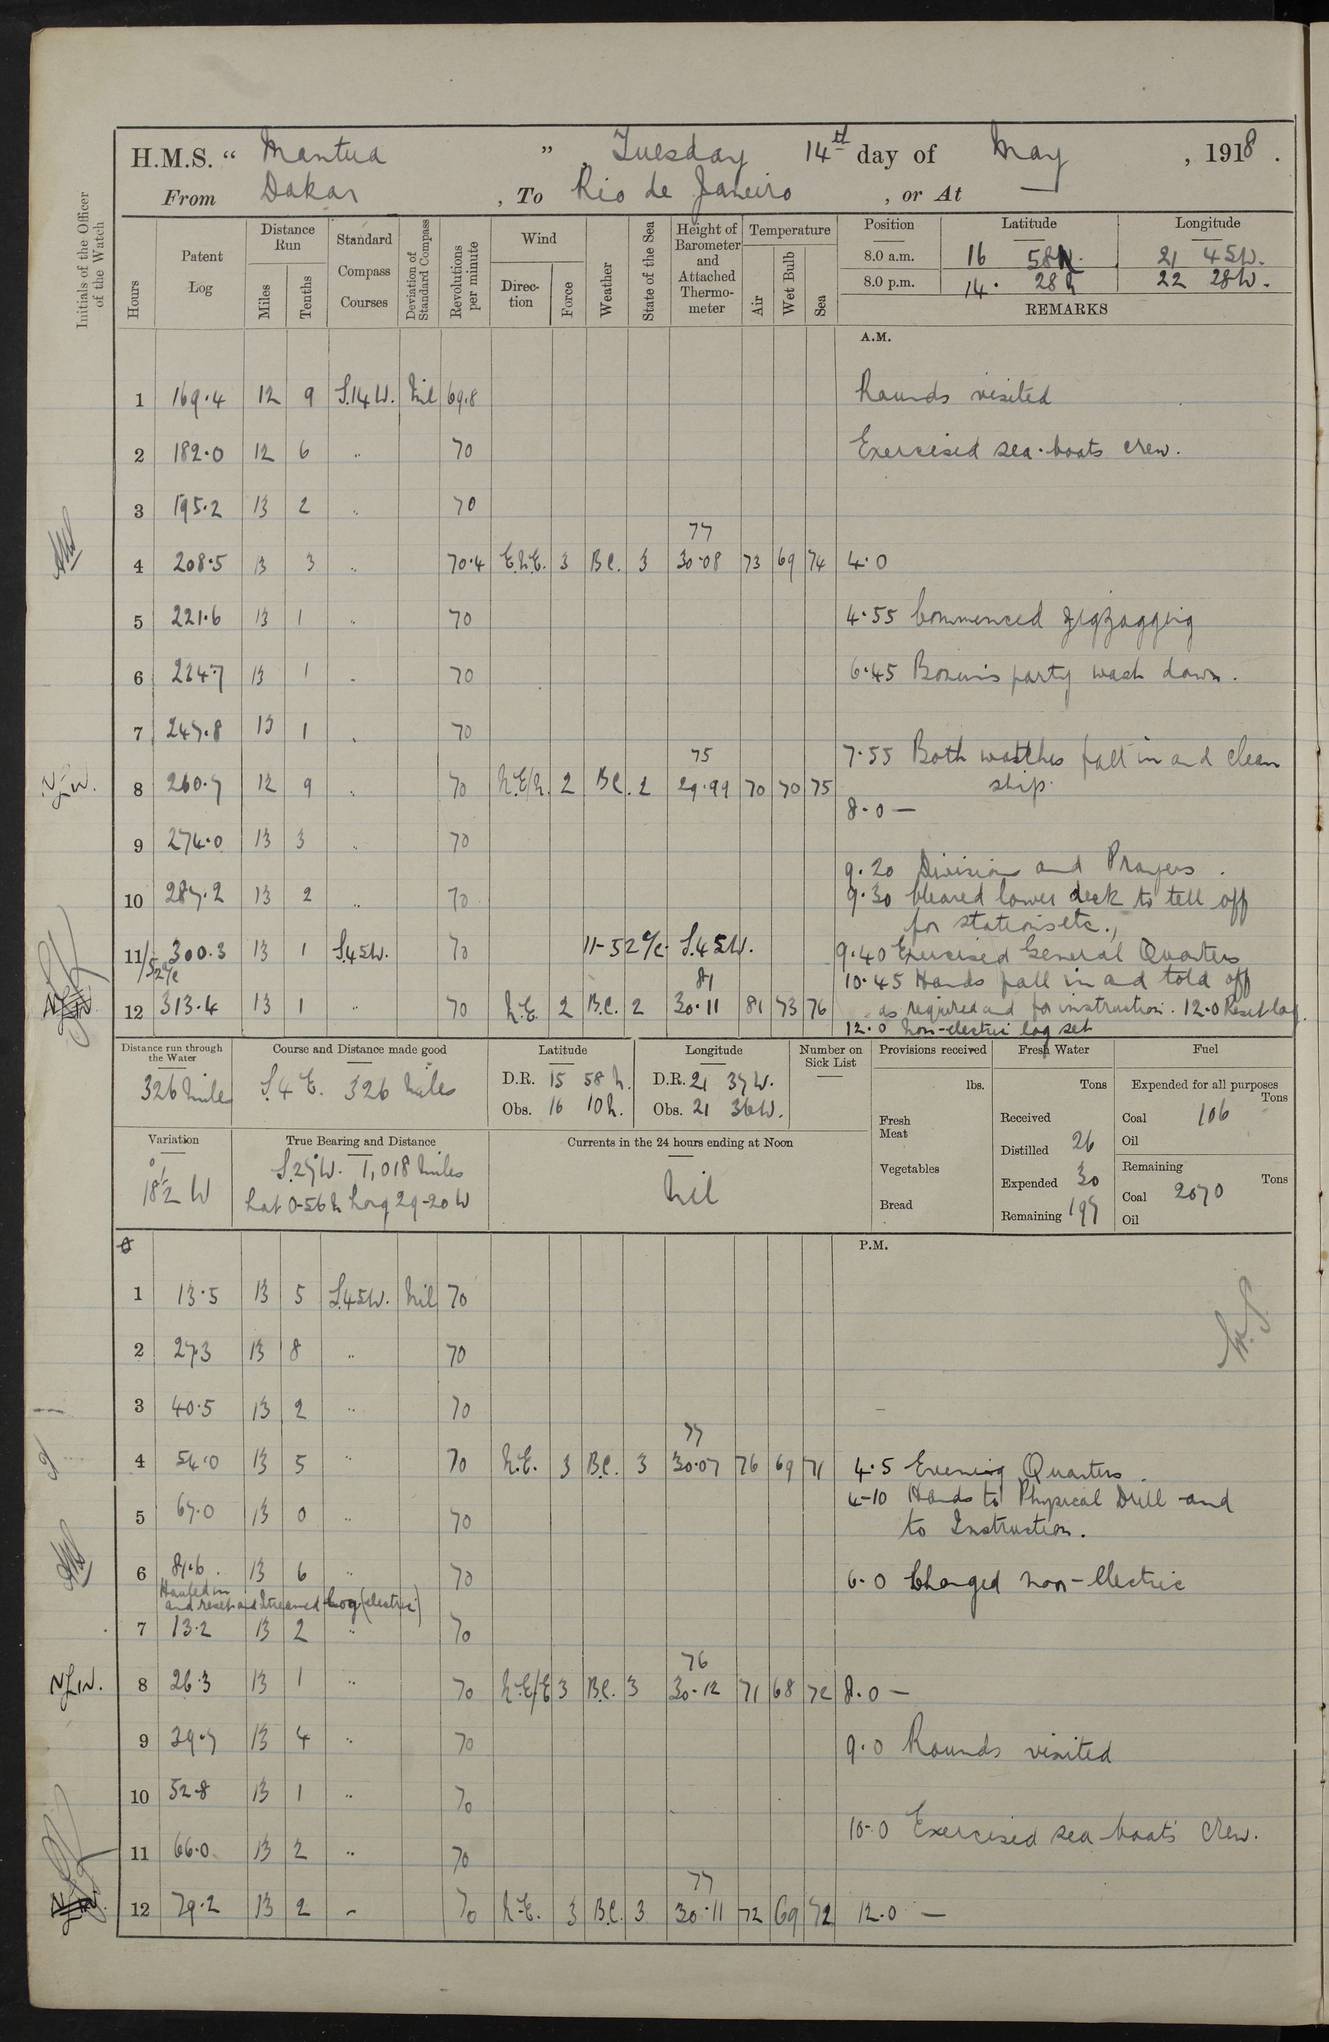 H.M.S. " Mantua " , Tuesday 14th day of May , 1918 .
From Dakar , To Rio de Janeiro , or At —
Initials of the Officer of the Watch
Hours Patent Log Distance Run Miles Tenths Standard Compass Courses Deviation of Standard Compass Revolutions per minute Wind Direction Force Weather State of the Sea Height of Barometer and Attached Thermometer Temperature Air Wet Bulb Sea Position Latitude Longitude
8.0 a.m. 16 58N. 21 45W.
8.0 p.m. 14. 28N 22 28W.
REMARKS
A.M.
1 169.4 12 9 S.14W. Nil 69.8 Rounds visited
2 182.0 12 6 " 70 Exercised sea-boats crew.
3 195.2 13 2 " 70
77
4 208.5 13 3 " 70.4 E.N.E. 3 B.C. 3 30.08 73 69 74 4.0
5 221.6 13 1 " 70 4.55 Commenced zigzagging
6 234.7 13 1 " 70 6.45 Bosuns party wash down.
7 247.8 13 1 " 70
75 7.55 Both watches fall in and clean
8 260.7 12 9 " 70 N.E/N. 2 B.C. 2 29.99 70 70 75 ship.
8.0 —
9 274.0 13 3 " 70
9.20 Divisions and Prayers.
10 287.2 13 2 " 70 9.30 Cleared lower deck to tell off
for stations etc.,
11 300.3 13 1 S.45W. 70 11-52 a/c. S.45W. 9.40 Exercised General Quarters
/52 a/c 81 10.45 Hands fall in and told off
12 313.4 13 1 " 70 N.E. 2 B.C. 2 30.11 81 73 76 as required and for instruction. 12.0 Reset log.
12.0 Non-electric log set
Distance run through the Water Course and Distance made good Latitude Longitude Number on Sick List Provisions received Fresh Water Fuel
326 miles S.4E. 326 miles D.R. 15 58N. D.R. 21 37W. lbs. Tons Expended for all purposes Tons
Obs. 16 10N. Obs. 21 36W. Fresh Meat Received Coal 106
Variation True Bearing and Distance Currents in the 24 hours ending at Noon Distilled 26 Oil
18½° W S.27°W. 1,018 miles Nil Vegetables Expended 30 Remaining Tons
Lat 0-56N Long 29-20W Coal 2070
Bread Remaining 197 Oil
P.M.
1 13.5 13 5 S.45W. Nil 70
2 27.3 13 8 " 70
3 40.5 13 2 " 70
77
4 54.0 13 5 " 70 N.E. 3 B.C. 3 30.07 76 69 71 4.5 Evening Quarters.
4-10 Hands to Physical Drill and
5 67.0 13 0 " 70 to Instruction.
6 81.6 13 6 " 70 6.0 Changed non-electric
Hauled in and reset and streamed Log (electric)
7 13.2 13 2 " 70
76
8 26.3 13 1 " 70 N.E/E 3 B.C. 3 30.12 71 68 72 8.0 —
9 39.7 13 4 " 70 9.0 Rounds visited
10 52.8 13 1 " 70
10.0 Exercised sea-boats crew.
11 66.0 13 2 " 70
77
12 79.2 13 2 " 70 N.E. 3 B.C. 3 30.11 72 69 72 12.0 —